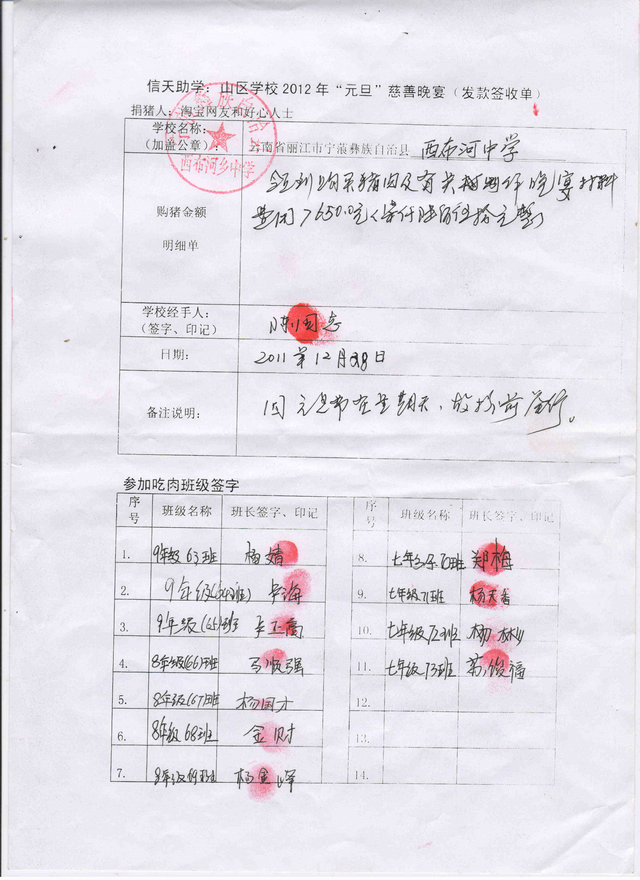 信天助学：山区学校2012年“元旦”慈善晚宴（发款签收单）
捐猪人：淘宝网友和好心人士
学校名称：
（加盖公章）：
云南省丽江市宁蒗彝族自治县 西布河中学
西布河乡中学
购猪金额
明细单
7650.0元
学校经手人：
（签字、印记）
国志
日期：
2011年12月28日
备注说明：
因元旦节在星期天，故提前举行。
参加吃肉班级签字
序号 班级名称 班长签字、印记
1. 9年级63班 杨婧
2. 9年级(64班) 海
3. 9年级(65)班
4. 8年级(66)班 马俊强
5. 8年级(67)班 杨国才
6. 8年级68班 金财
7. 8年级69班 杨金
序号 班级名称 班长签字、印记
8. 七年级70班 郑梅
9. 七年级71班 杨天香
10. 七年级72班 杨彬
11. 七年级73班 俊福
12.
13.
14.